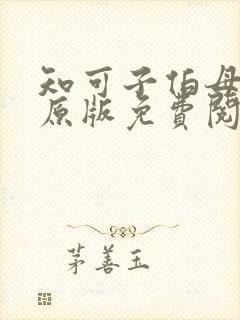 知可子伯母
原版免费阅
茅善玉